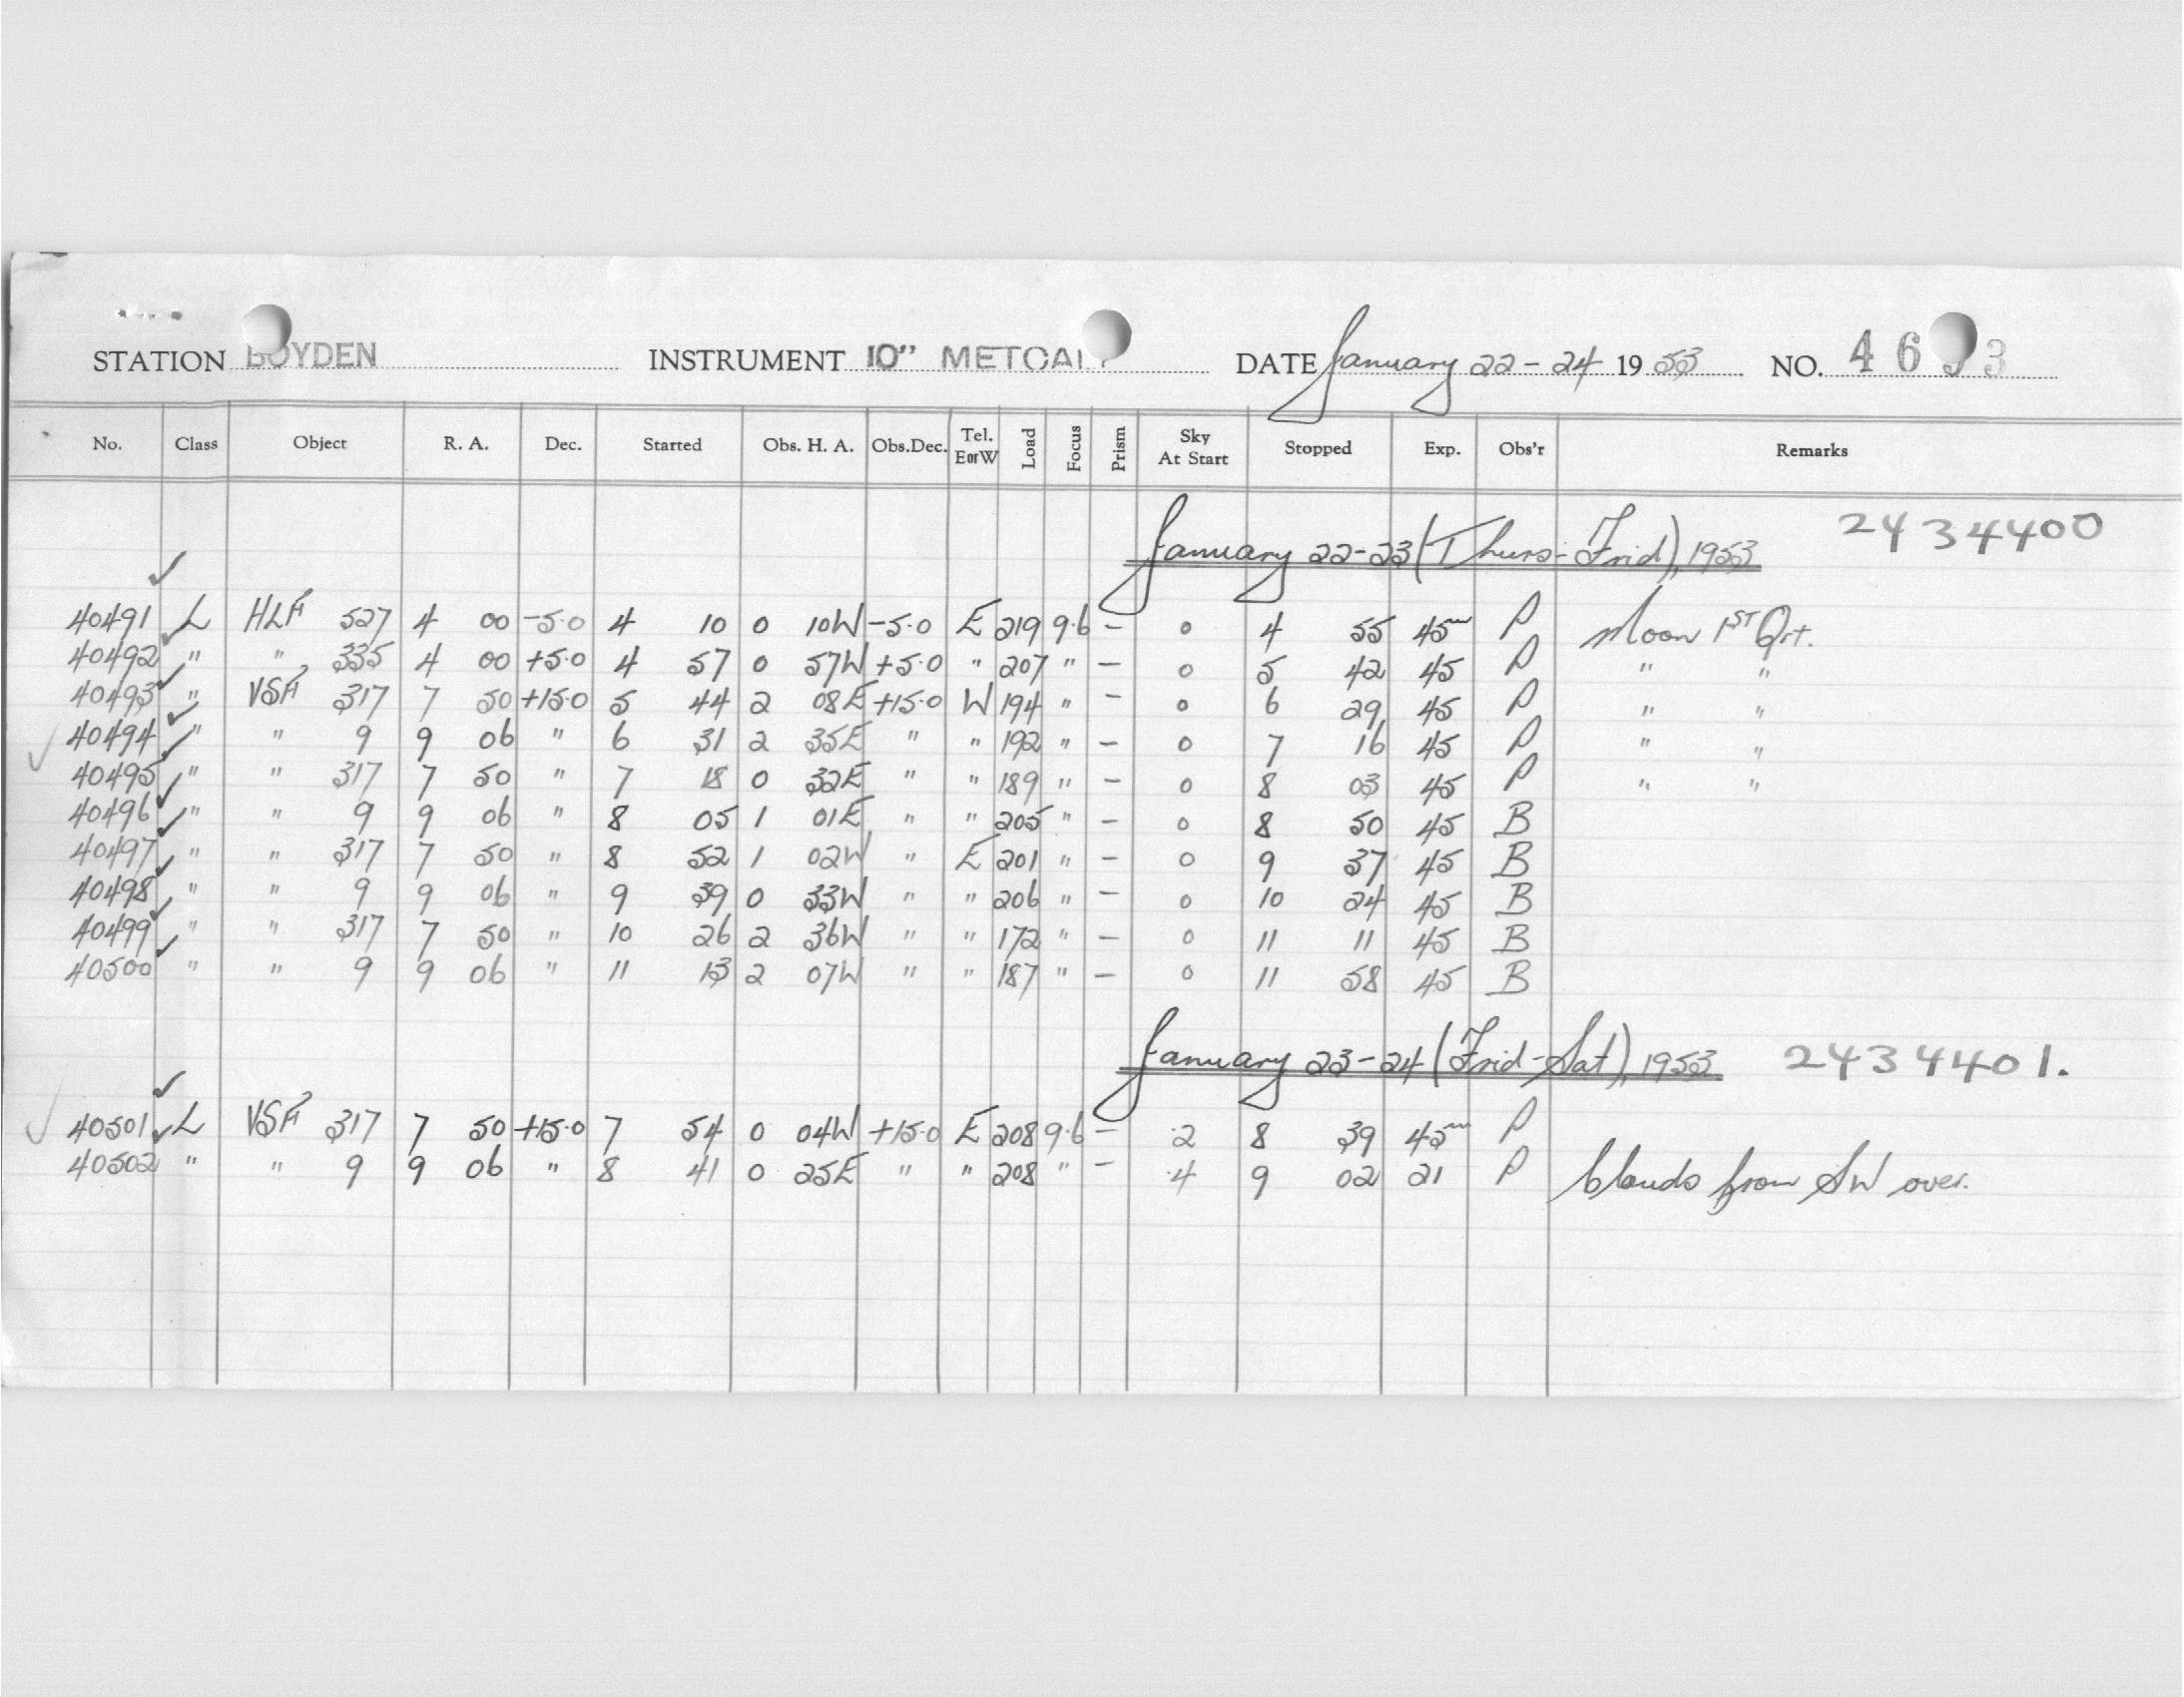 STATION BOYDEN INSTRUMENT 10" METCALF DATE January 22-24 1953 NO. 4693
No. Class Object R. A. Dec. Started Obs. H. A. Obs.Dec. Tel. E or W Load Focus Prism Sky At Start Stopped Exp. Obs'r Remarks
January 22-23 (Thurs-Frid), 1953 2434400
40491 L HLF 527 4 00 -5.0 4 10 0 10W -5.0 E 219 9.6 - 0 4 55 45m P Moon 1ST Qrt.
40492 " " 335 4 00 +5.0 4 57 0 57W +5.0 " 207 " - 0 5 42 45 P " "
40493 " VSF 317 7 50 +15.0 5 44 2 08E +15.0 W 194 " - 0 6 29 45 P " "
40494 " " 9 9 06 " 6 31 2 35E " " 192 " - 0 7 16 45 P " "
40495 " " 317 7 50 " 7 18 0 32E " " 189 " - 0 8 03 45 P " "
40496 " " 9 9 06 " 8 05 1 01E " " 205 " - 0 8 50 45 B
40497 " " 317 7 50 " 8 52 1 02W " E 201 " - 0 9 37 45 B
40498 " " 9 9 06 " 9 39 0 33W " " 206 " - 0 10 24 45 B
40499 " " 317 7 50 " 10 26 2 36W " " 172 " - 0 11 11 45 B
40500 " " 9 9 06 " 11 13 2 07W " " 187 " - 0 11 58 45 B
January 23-24 (Frid-Sat), 1953 2434401.
40501 L VSF 317 7 50 +15.0 7 54 0 04W +15.0 E 208 9.6 - 2 8 39 45m P
40502 " " 9 9 06 " 8 41 0 25E " " 208 " - 4 9 02 21 P Clouds from SW over.